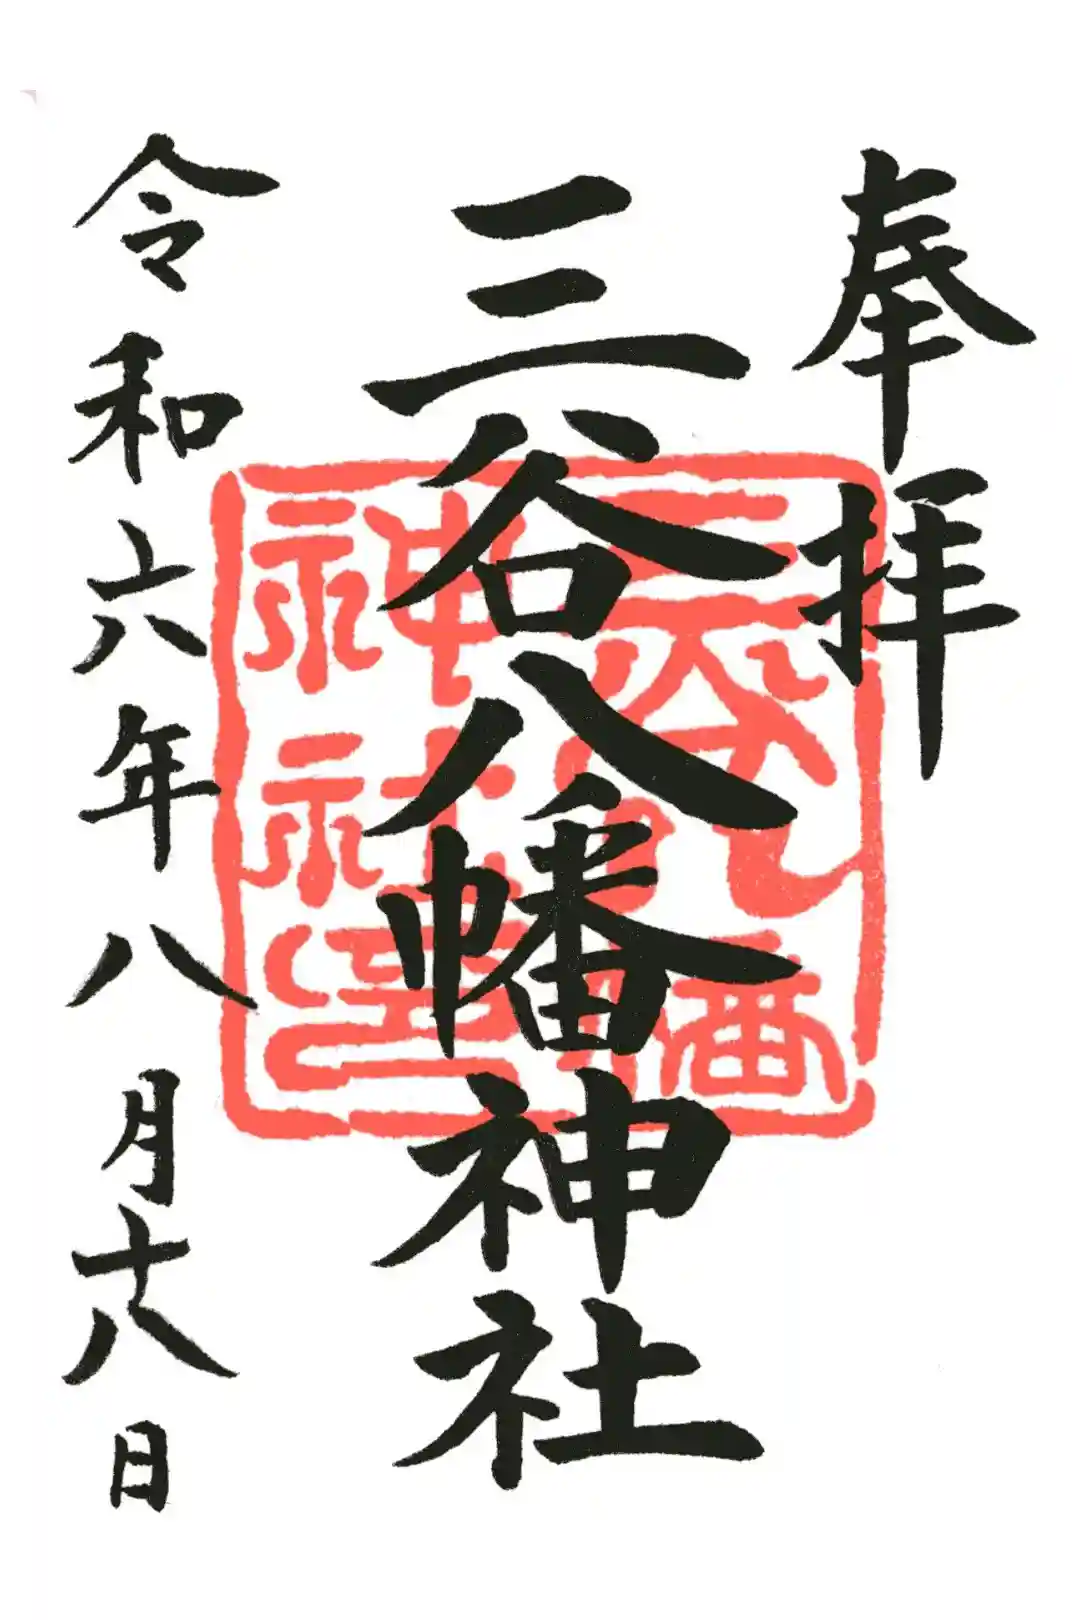 奉拝
三谷八幡神社
三谷八幡
神社璽
令和六年八月十八日